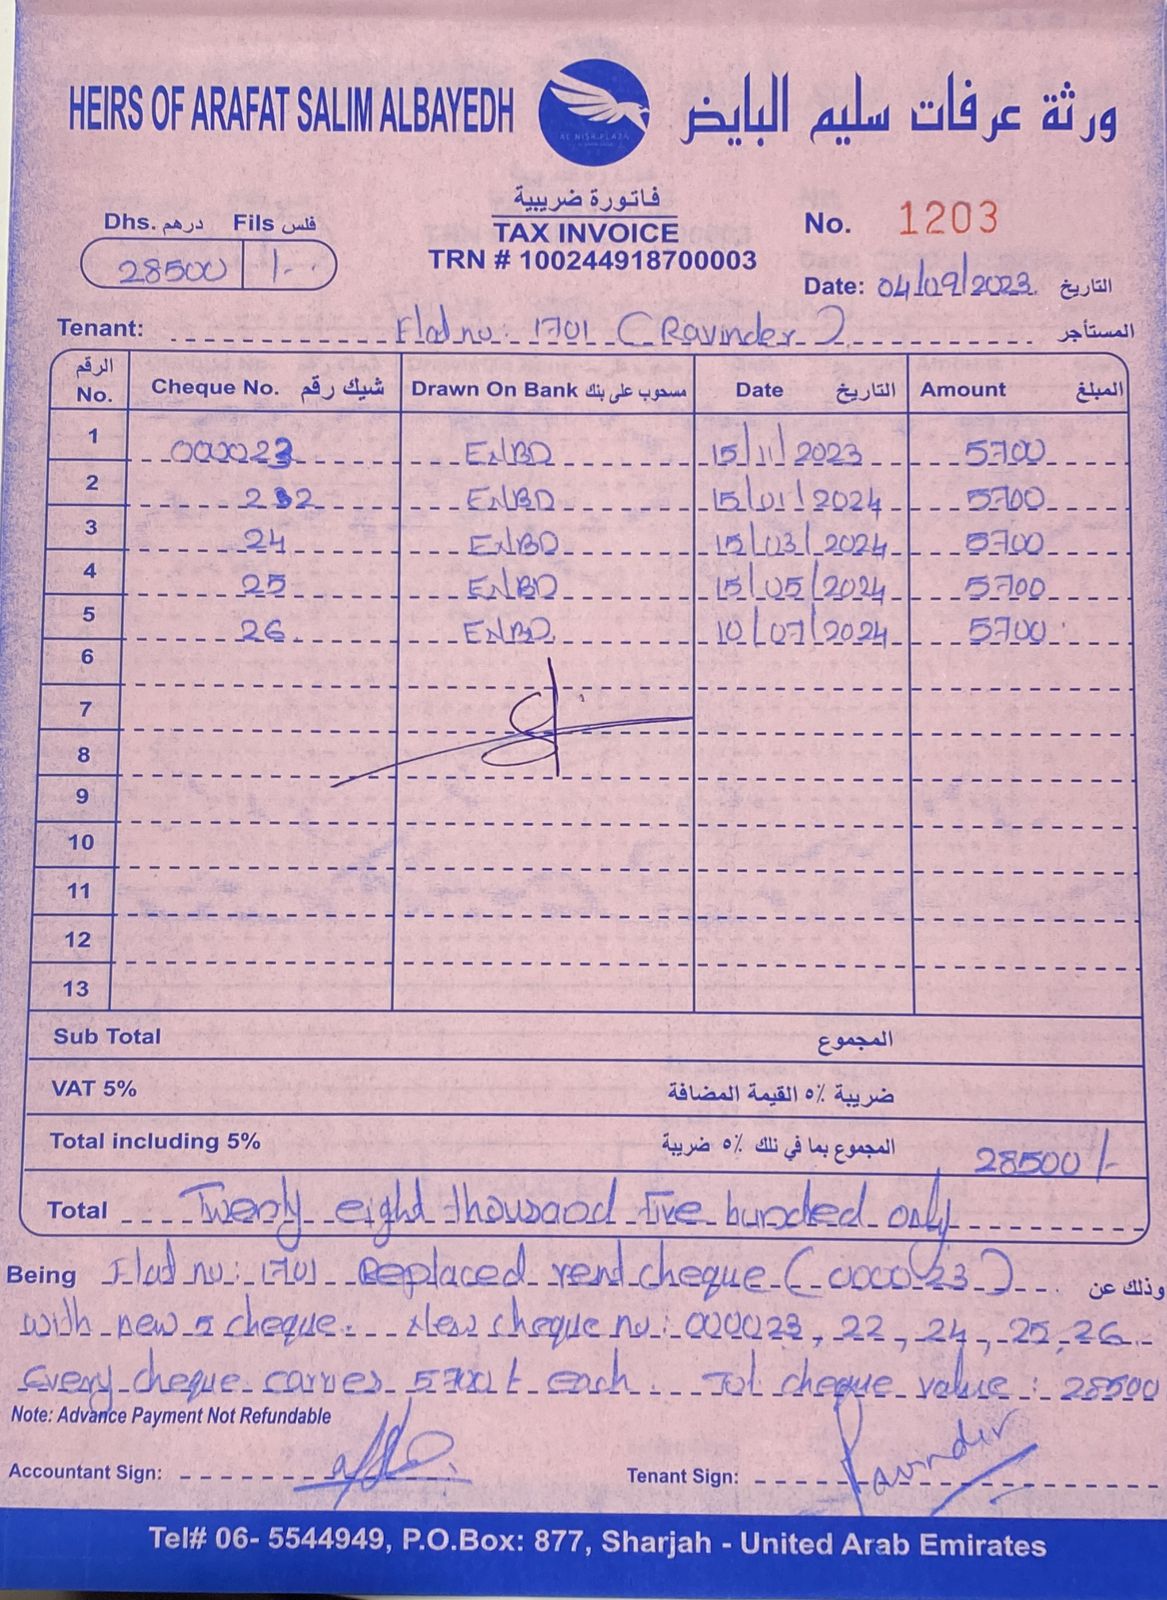 HEIRS OF ARAFAT SALIM ALBAYEDH ورثة عرفات سليم البايض
AL NISR PLAZA
فاتورة ضريبية
TAX INVOICE
TRN # 100244918700003
Dhs. درهم Fils فلس
28500 /--
No. 1203
Date: 04/09/2023 التاريخ
Tenant: Flat no: 1701 (Ravinder) المستأجر
الرقم No. Cheque No. شيك رقم Drawn On Bank مسحوب على بنك Date التاريخ Amount المبلغ
1 000023 ENBD 15/11/2023 5700
2 22 ENBD 15/01/2024 5700
3 24 ENBD 15/03/2024 5700
4 25 ENBD 15/05/2024 5700
5 26 ENBD 10/07/2024 5700
6
7
8
9
10
11
12
13
Sub Total المجموع
VAT 5% ضريبة ٥٪ القيمة المضافة
Total including 5% المجموع بما في تلك ٥٪ ضريبة 28500/-
Total Twenty eight thousand five hunded only
Being Flat no: 1701 Replaced rent cheque (000023) وذلك عن
with new 5 cheque. New cheque no: 000023, 22, 24, 25, 26
Every cheque carries 5700/- each. Tot cheque value: 28500
Note: Advance Payment Not Refundable
Accountant Sign:
Tenant Sign: Ravinder
Tel# 06- 5544949, P.O.Box: 877, Sharjah - United Arab Emirates